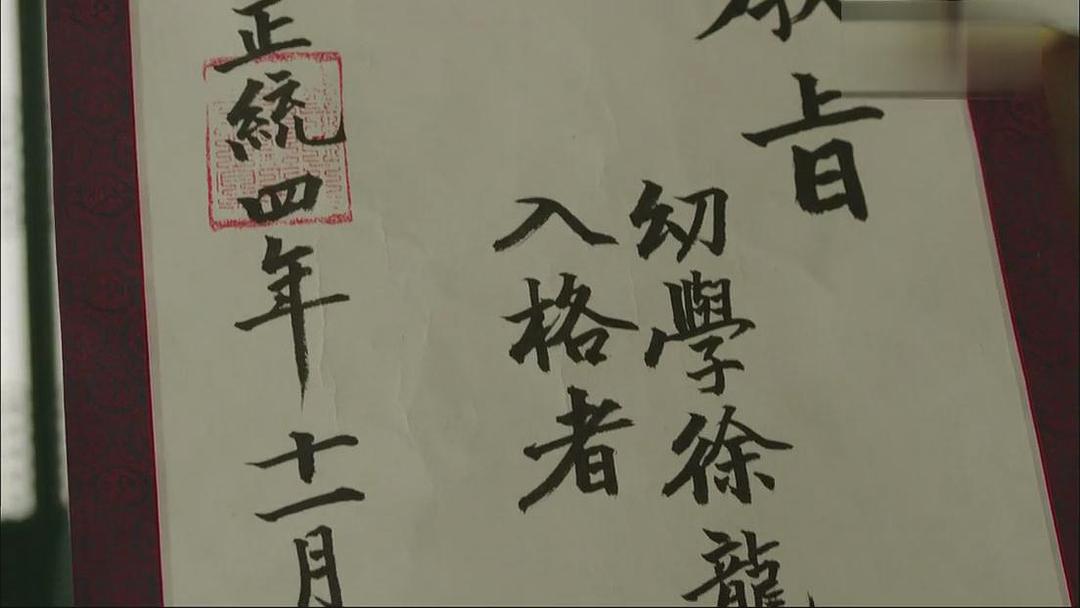 旨
幼學徐龍
入格者
正統四年十一月